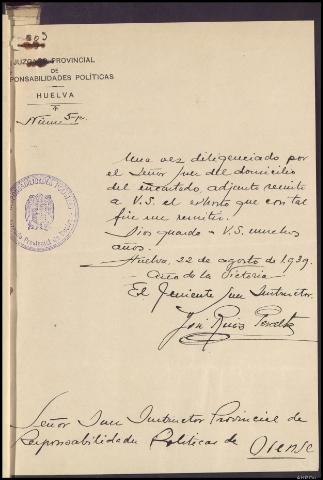 JUZGADO PROVINCIAL
DE
RESPONSABILIDADES POLÍTICAS
HUELVA
Núm 5-p.
Una vez diligenciado por
el Señor Juez del domicilio
del encartado, adjunto remito
a V.S. el exhorto que con tal
fin me remitió.
Dios guarde a V.S. muchos
años.
Huelva, 22 de agosto de 1939.
Año de la Victoria
El Teniente Juez Instructor.
José Ruiz
Señor Juez Instructor Provincial de
Responsabilidades Políticas de Orense